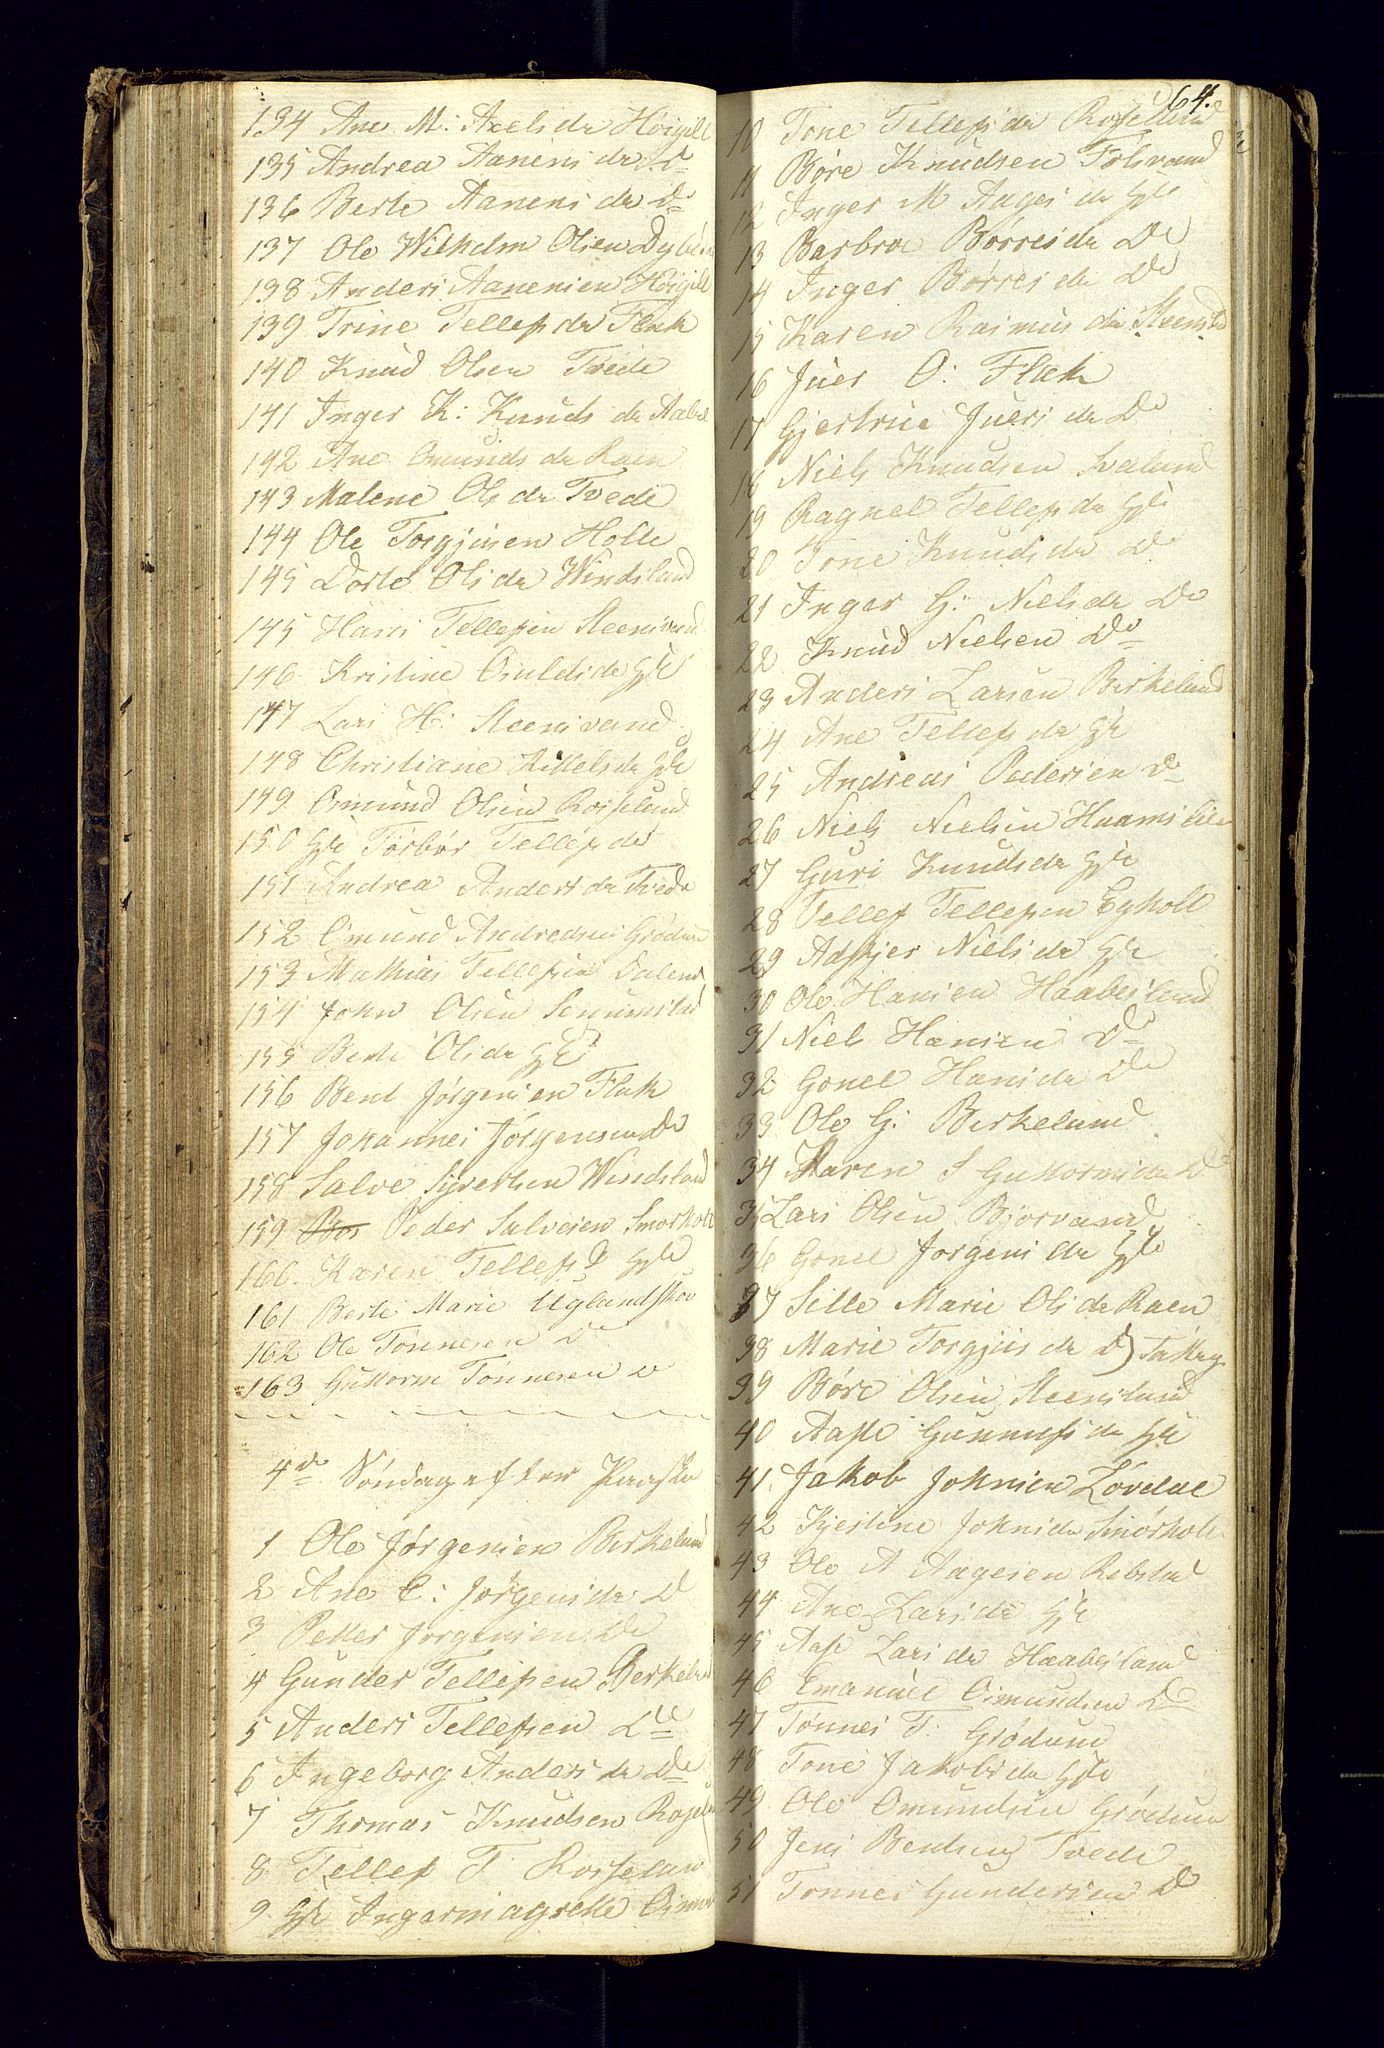 134 Ane M: Axelsdr Høigilt
135 Andrea Aanensdr Do
136 Berte Aanensdr Do
137 Ole Wilhelm Olsen
138 Anders Aanensen Høigilt
139 Trine Tellefsdr Flak
140 Knud Olsen Tvede
141 Inger K: Knudsdr
142 Ane Omundsdr Raen
143 Malene Olsdr Tvede
144 Ole Torgjusen Holte
145 Dorte Olsdr Windsland
145 Hans Tellefsen Steensvand
146 Kristine Omuldsdr Hst
147 Lars H: Steensvand
148 Christiane Kittelsdr Hst
149 Osmund Olsen Rosseland
150 Hst Torbor Tellefsdr
151 Andrea Andersdr Tvede
152 Omund Andredsen Grødum
153 Mathias Tellefsen
154 John Olsen Senumstad
155 Berte Olsdr Hst
156 Bent Jørgensen Flak
157 Johannes Jørgensen Do
158 Salve Syvertsen Windsland
159 Peder Salvesen Smørholt
160 Karen Tellefsd Hst
161 Berte Marie Uglandskov
162 Ole Tønnesen Do
163 Guttorm Tønnesen Do
4de Søndag efter Paaske
1 Ole Jørgensen Berkeland
2 Ane C: Jørgensdr Do
3 Petter Jørgensen Do
4 Gunder Tellefsen Berkeland
5 Anders Tellefsen Do
6 Ingeborg Andersdr Do
7 Thomas Knudsen
8 Tellef T: Rosseland
9 Hst Ingermagrette
64.
10 Tone Tellefsdr Rosseland
11 Børe Knudsen
12 Inger M Aagesdr Hst
13 Barbroe Børresdr Do
14 Inger Børresdr Do
15 Karen Rasmusdr
16 Juer O: Flak
17 Gjertrue Juersdr Do
18 Niels Knudsen Svaland
19 Ragnel Tellefsdr Hst
20 Tone Knudsdr Do
21 Inger G: Nielsdr Do
22 Knud Nielsen Do
23 Anders Larsen Berkeland
24 Ane Tellefsdr Hst
25 Andreas Pedersen Do
26 Niels Nielsen
27 Guri Knudsdr Hst
28 Tellef Tellefsen Egholt
29 Adsjer Nielsdr Hst
30 Ole Hansen Haabesland
31 Niels Hansen Do
32 Gonel Hansdr Do
33 Ole G: Berkeland
34 Karen S Guttormsdr Do
35 Lars Olsen Bjorvand
36 Gonel Jorgensdr Hst
37 Sille Marie Olsdr Raen
38 Marie Torgjusdr Do
39 Børe Olsen Steensland
40 Aasle Gunnufsdr Hst
41 Jakob Johnsen Lovdal
42 Kjestine Johnsdr Smørholt
43 Ole A Aagesen Rebstad
44 Ane Larsdr Hst
45 Aase Larsdr Haabesland
46 Emanuel Osmundsen Do
47 Tønnes T: Grødum
48 Tone Jakobsdr Hst
49 Ole Omundsen Grødum
50 Jens Bentsen Tvede
51 Tønnes Gundersen Do